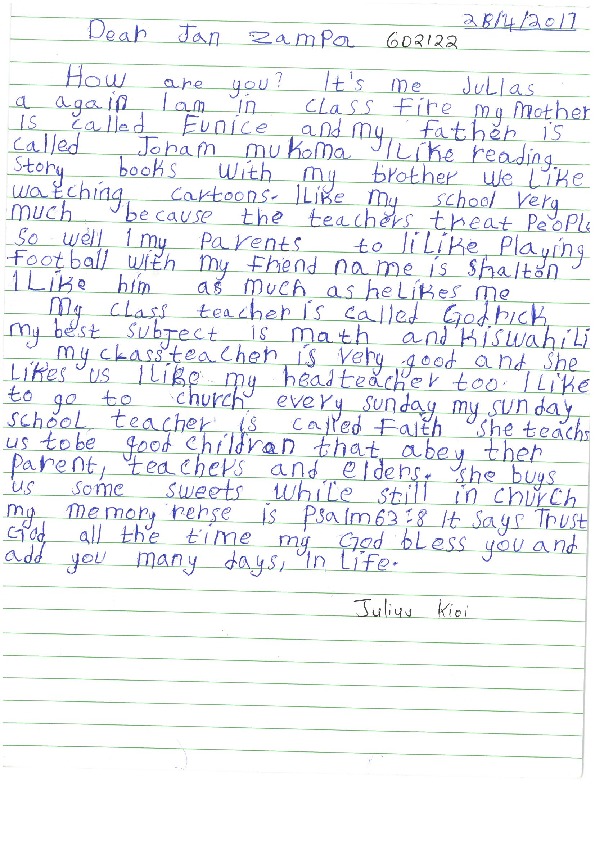 28/4/2017
Dear Jan Zampa 602122
How are you? It's me Jullas
a again I am in class Fire my mother
is called Eunice and my father is
called Joram mukoma I Like reading
story books with my brother we Like
watching cartoons. I Like my school very
much because the teachers treat People
so well I my Parents to liLike Playing
Football with my friend name is Shalton
I Like him as much as he Likes me
My class teacher is called Godrick
my best subject is math and Kiswahili
my ckassteacher is very good and she
Likes us I Like my headteacher too. I Like
to go to church every sunday my sunday
school teacher is called Faith she teachs
us tobe good children that abey ther
parent, teachers and elders. she buys
us some sweets while still in church
my memory rerse is Psalm 63:8 It says Trust
God all the time my God bless you and
add you many days, in Life.
Kioi